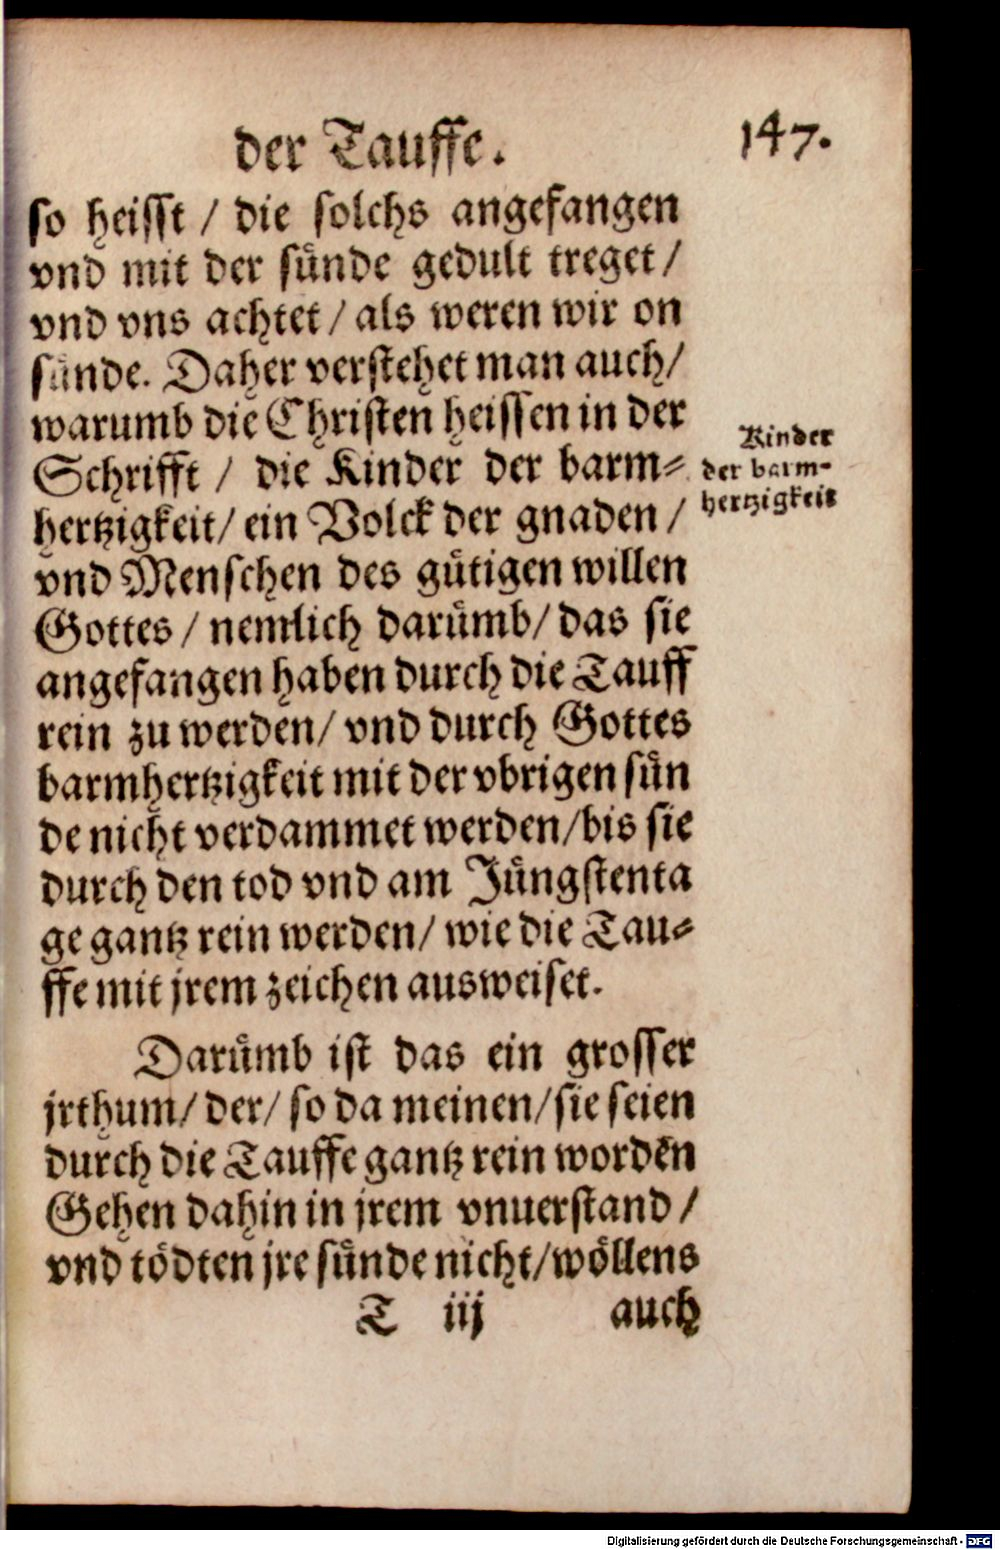 der Tauffe.
147.
so heisst / die solchs angefangen
vnd mit der sünde gedult treget /
vnd vns achtet / als weren wir on
sünde. Daher verstehet man auch /
warumb die Christen heissen in der
Schrifft / die Kinder der barm=
hertzigkeit / ein Volck der gnaden /
vnd Menschen des gütigen willen
Gottes / nemlich darümb / das sie
angefangen haben durch die Tauff
rein zu werden / vnd durch Gottes
barmhertzigkeit mit der vbrigen sün
de nicht verdammet werden / bis sie
durch den tod vnd am Jüngstenta
ge gantz rein werden / wie die Tau=
ffe mit jrem zeichen ausweiset.
Kinder
der barm-
hertzigkeit
Darümb ist das ein grosser
jrthum / der / so da meinen / sie seien
durch die Tauffe gantz rein wordẽn
Gehen dahin in jrem vnuerstand /
vnd tödten jre sünde nicht / wöllens
T iij auch
Digitalisierung gefördert durch die Deutsche Forschungsgemeinschaft - DFG